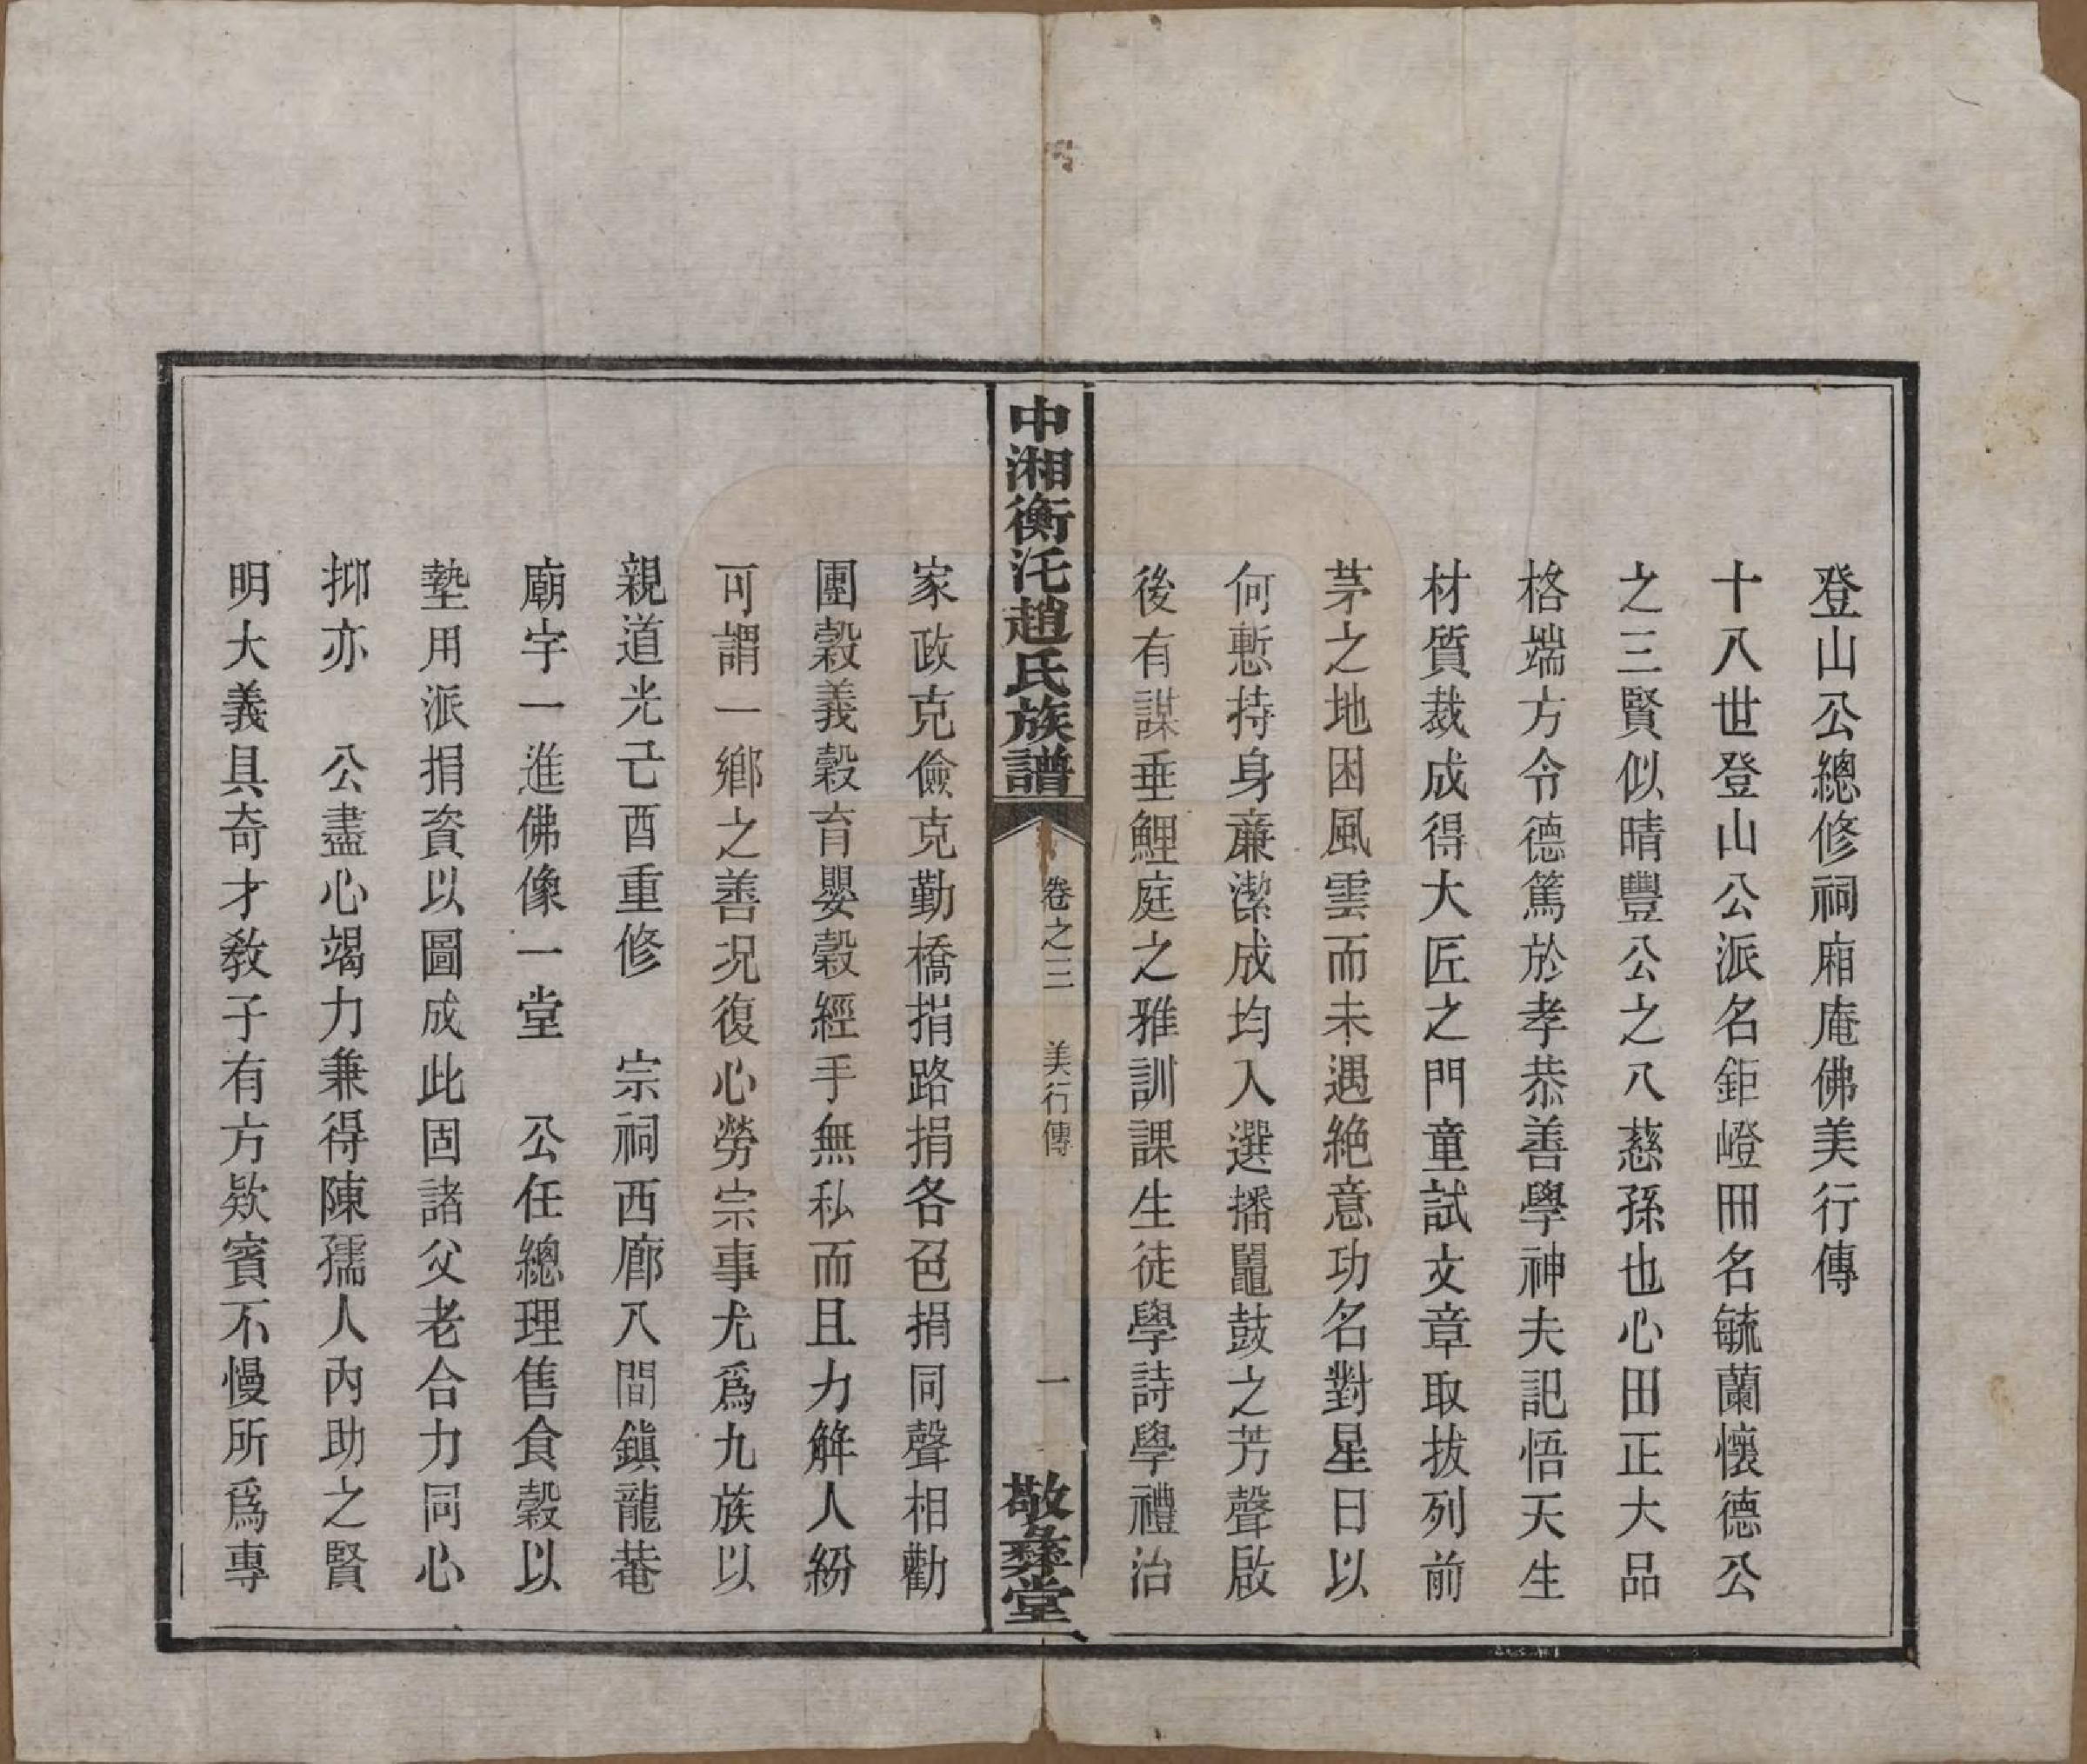 登山公總修祠廂庵佛美行傳
十八世登山公派名鉅嶝冊名毓蘭懷德公
之三賢似晴豐公之八慈孫也心田正大品
格端方令德篤於孝恭善學神夫記悟天生
材質裁成得大匠之門童試文章取拔列前
茅之地困風雲而未遇絶意功名對星日以
何慙持身廉潔成均入選播鼉鼓之芳聲啟
後有謀垂鯉庭之雅訓課生徒學詩學禮治
中湘衡汑趙氏族譜
卷之三 美行傳
一
敬彝堂
家政克儉克勤橋捐路捐各色捐同聲相勸
團穀義穀育嬰穀經手無私而且力解人紛
可謂一鄉之善況復心勞宗事尤爲九族以
親道光己酉重修 宗祠西廊八間鎮龍菴
廟宇一進佛像一堂 公任總理售食穀以
墊用派捐資以圖成此固諸父老合力同心
抑亦 公盡心竭力兼得陳孺人內助之賢
明大義具奇才教子有方欵賓不慢所爲專